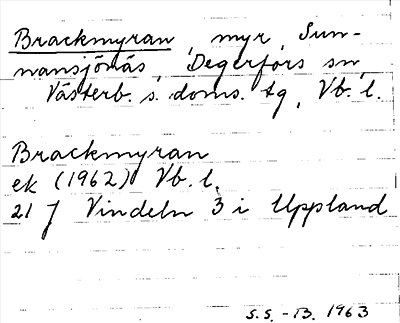 Brackmyran, myr, Sun-
nansjönäs, Degerfors sn,
Västerb. s. doms. tg, Vb. l.
Brackmyran
ek (1962) Vb. l.
21 J Vindeln 3 i Uppland
S.S. -B. 1963